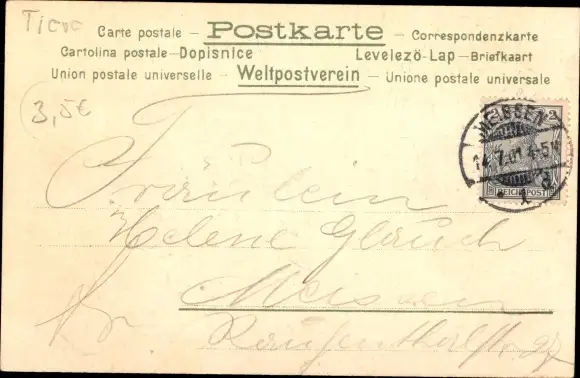 Tiere
Carte postale – Postkarte – Correspondenzkarte
Cartolina postale – Dopisnice Levelező-Lap – Briefkaart
Union postale universelle – Weltpostverein – Unione postale universale
3,5€
MEISSEN
14.7.01.4-5N
2 2
REICHSPOST
Fräulein
Helene Glauch
Meissen